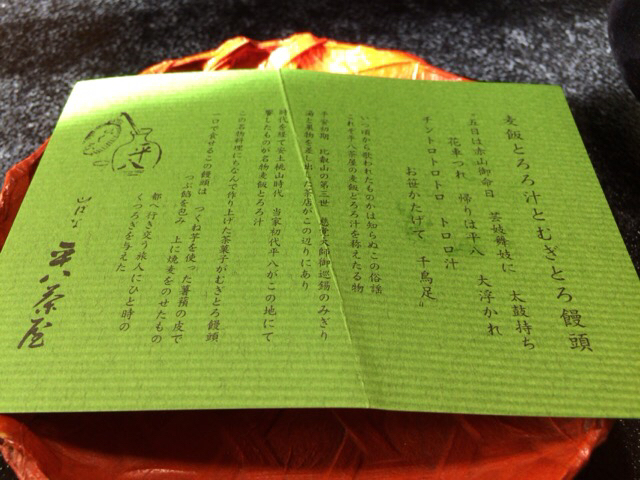 麦飯とろろ汁とむぎとろ饅頭
"五日は赤山御命日 芸妓舞妓に 太鼓持ち
花車つれ 帰りは平八 大浮かれ
チントロトロトロ トロロ汁
お世かたげて 千鳥足"
いつ頃から歌われたものかは知らぬこの俗謡
これぞ平八茶屋の麦飯とろろ汁を称えたる物
平安初期 比叡山の第三世 慈覚大師御巡錫のみぎり
湯と菓物を差し出した茶店がこの辺りにあり
時代を経て安土桃山時代 当家初代平八がこの地にて
饗したものが名物麦飯とろろ汁
この名物料理にちなんで作り上げた茶菓子がむぎとろ饅頭
一口で食せるこの饅頭は つくね芋を使った薯蕷の皮で
つぶ餡を包み 上に焼麦をのせたもの
都へ行き交う旅人にひと時の
くつろぎを与えた
平八
山ばな
平八茶屋